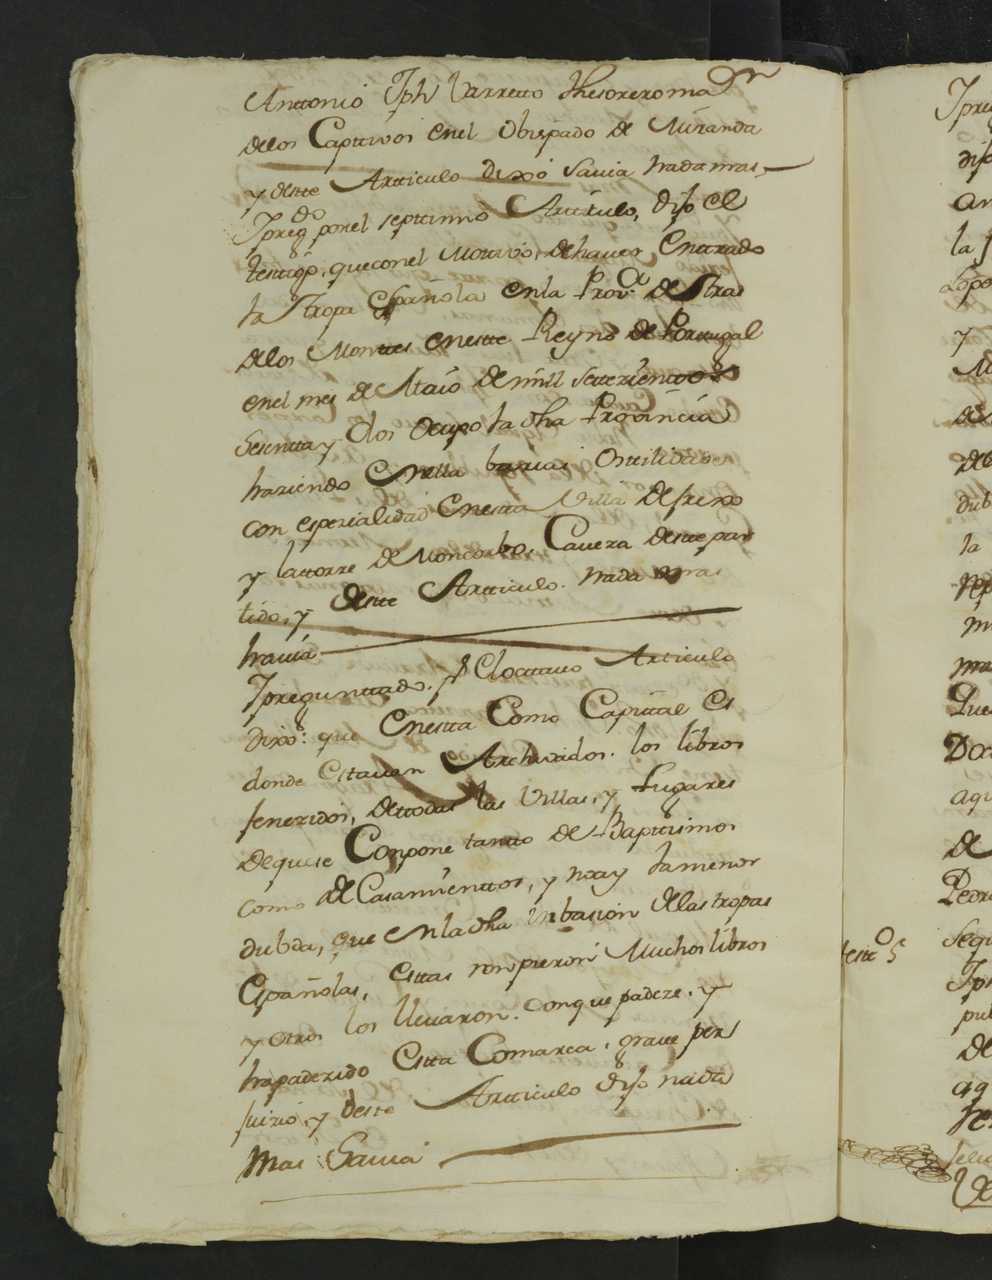 Anttonio Jph Varretto thesorero ma.or
delos Capttivos enel Obispado de Miranda
y desste Artticulo dixo Savia nada mas
Ypreg.do porel septtimo Artitulo, dijo el
testtigo, queconel Mottivo, dehaver Enttrado
la Ttropa Española enla Prov.a de Ttras
delos Monttes enestte Reyno de Porttugal
enel mes de Maio de mill settezienttos
Sesentta y dos Ocupo la dha Provincia
haziendo Enella barias Ostilidades
con espezialidad Enestta Villa de frexo
y lattorre de Moncorbo, Caveza desttepar
tido, y destte Artticulo. nada mas
havia
Ypregunttado. p.r Elocttavo Articulo
dixo: que Enestta Como Capittal es
donde Estavan Archivados. los libros
fenezidos, dettodas las Villas, y Lugares
dequese Conpone tantto de Bapttismos
como de Casamienttos, y noay lamenor
dubda, que enladha Inbasion delas tropas
Españolas, esttas ronpieron Muchos libros
y otros los llevaron. conque padeze, y
hapadezido Estta Comarca, grave per
juizio, y destte Artticulo dijo nada
mas Savia
Ypreg
dij
an
la
Lopo
y
de
dub
la
m
Que
aqu
de
Pedro
testt.o 5
Segu
Jph
pub
de